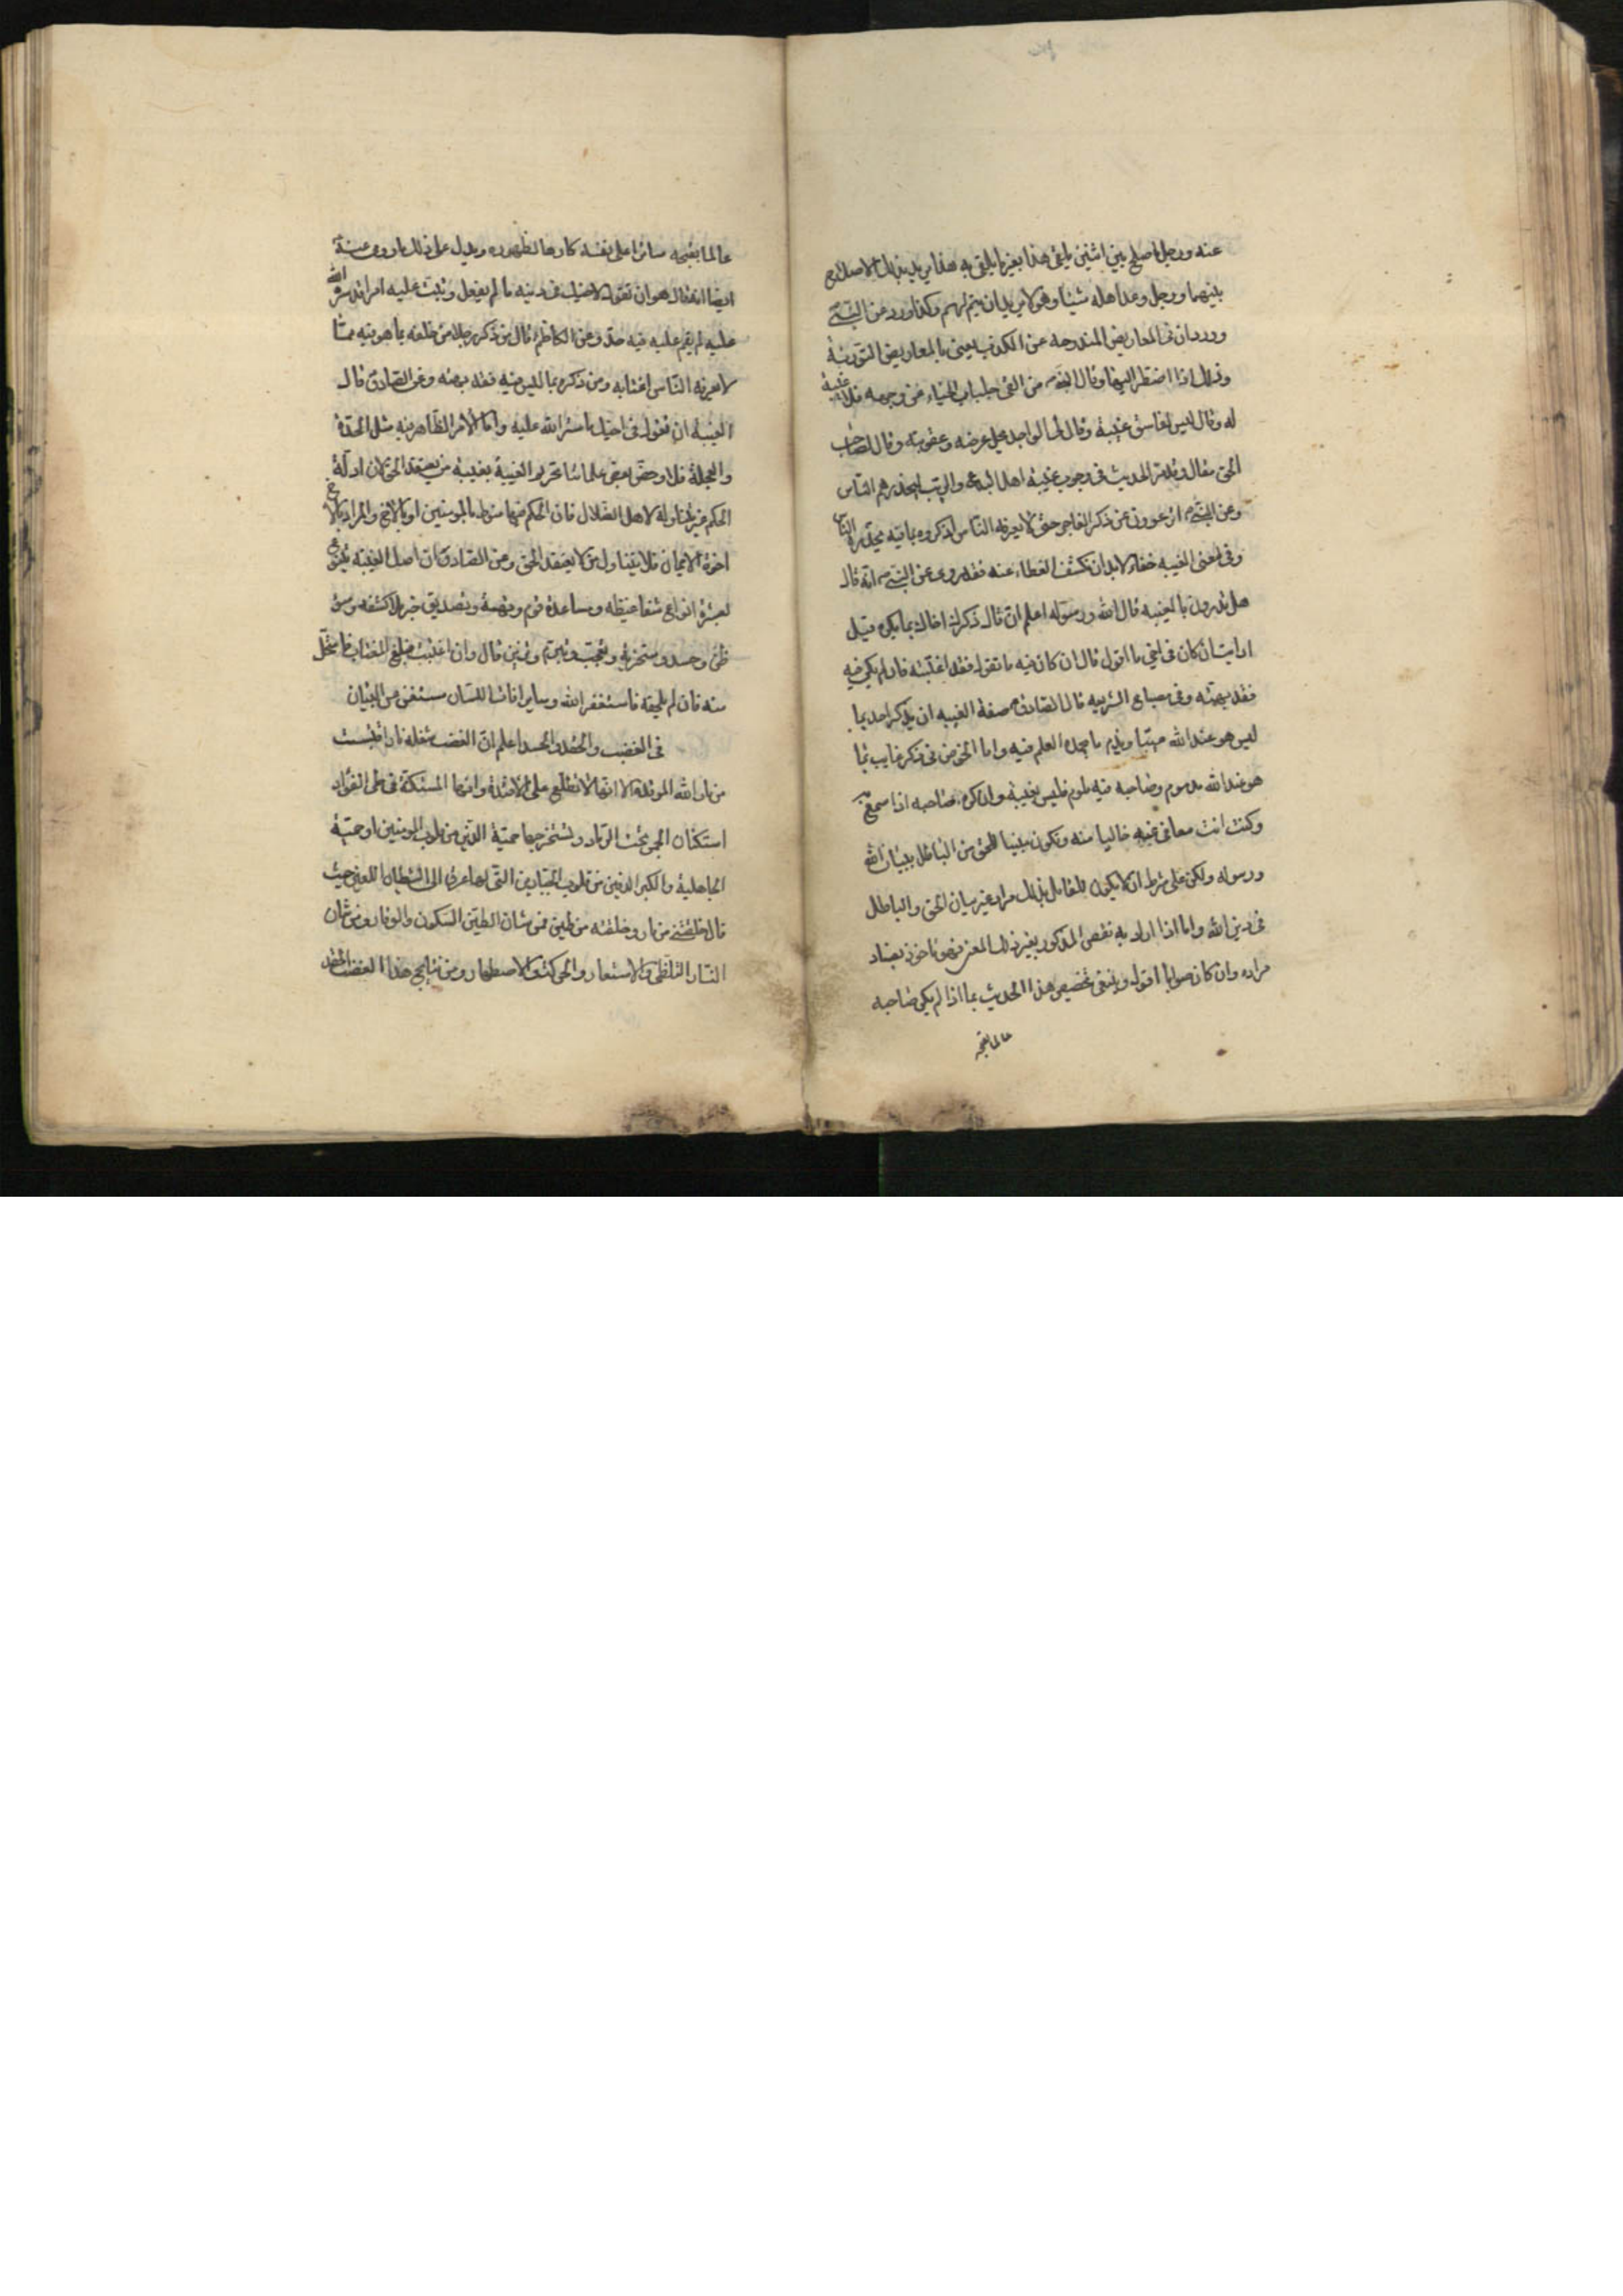 عنه ورجل اصلح بين اثنين يلقى هذا بغير ما يلقى به هذا يريد بذلك الاصلاح
بينهما ورجل وعد اهله شيئا وهو لا يريد ان يتم لهم وكذا ورد عن النبي ص
وورد ان في المعاريض المندوحه عن الكذب يعنى بالمعاريض التورية
وذلك اذا اضطر اليها وقال النبي ص من القى جلباب الحياء عن وجهه فلا غيبة
له وقال ليس لفاسق غيبة وقال لي الواجد يحل عرضه وعقوبته وقال لصاحب
الحق مقال الحديث في وجوب غيبة اهل البدعه والريب ليحذرهم الناس
وعن النبي ص اترعوون عن ذكر الفاجر حتى لا يعرفه الناس اذكروه بما فيه يحذره الناس
وفي معنى الغيبه خفاء لا بد ان نكشف الغطاء عنه فقد روى عن النبي ص انه قال
هل تدرون ما الغيبه قال الله ورسوله اعلم قال ذكرك اخاك بما يكره قيل
ارايت ان كان في اخي ما اقول قال ان كان فيه ما تقول فقد اغتبته فان لم يكن فيه
فقد بهته وفي مصباح الشريعه قال الصادق ع صفة الغيبه ان يذكر احد بما
ليس هو عند الله عيبا ويذم ما يحمده العلم فيه واما الخوض في ذكر غايب بما
هو عند الله مذموم وصاحبه فيه ملوم فليس بغيبة وان كره صاحبه اذا سمع به
وكنت انت معافى عنه خاليا منه وتكون مبينا للحق من الباطل ببيان الله
ورسوله ولكن على شرط ان لا يكون للقايل بذلك مراد غير بيان الحق والباطل
في دين الله واما اذا اراد به نقص المذكور بغير ذلك المعنى فهو ماخوذ بفساد
مراده وان كان صوابا اقول وينبغى تخصيص هذا الحديث بما اذا لم يكن صاحبه
عالما بقبحه
عالما بقبحه ساترا على نفسه كارها لظهوره ويدل على ذلك ما روى عنه ع
ايضا انه قال هو ان تقول لاخيك في دينه ما لم يفعل وتبث عليه امرا قد ستره الله
عليه لم يقم عليه فيه حد وعن الكاظم ع قال من ذكر رجلا من خلفه بما هو فيه مما
لا يعرفه الناس اغتابه ومن ذكره بما ليس فيه فقد بهته وعن الصادق ع قال
الغيبه ان تقول في اخيك ما ستر الله عليه واما الامر الظاهر فيه مثل الحدة
والعجلة فلا وخص بعض علمائنا تحريم الغيبة بغيبة من يعتقد الحق لان ادلة
الحكم غير متناولة لاهل الضلال فان الحكم فيها منوط بالمومنين او بالاخ والمراد بالاخ
اخوة الايمان فلا يتناول من لا يعتقد الحق وعن الصادق ع ان اصل الغيبه يتنوع
بعشرة انواع شفاء غيظ ومساعدة قوم وتهمة وتصديق خبر بلا كشفه وسوء
ظن وحسد وسخرية وتعجب وتبرم وتزين قال وان اغتبت فبلغ المغتاب فاستحل
منه فان لم يلحقه فاستغفر الله وساير افات اللسان مستغن عن البيان
في الغضب والحقد والحسد اعلم ان الغضب شعلة نار اقتبست
من نار الله الموقدة الا انها لا تطلع على الافئدة وانها المستكنة في طي الفؤاد
استكنان الجمر تحت الرماد وتستخرجها حمية الدين من قلوب المومنين او حمية
الجاهلية والكبر الدفين من قلوب الجبارين التي لها عرق الى الشيطان اللعين حيث
قال خلقتني من نار وخلقته من طين فمن شان الطين السكون والوقار ومن شان
النار التلظى والاستعار والحركة والاصطهار ومن نتايج هذا الغضب الحقد